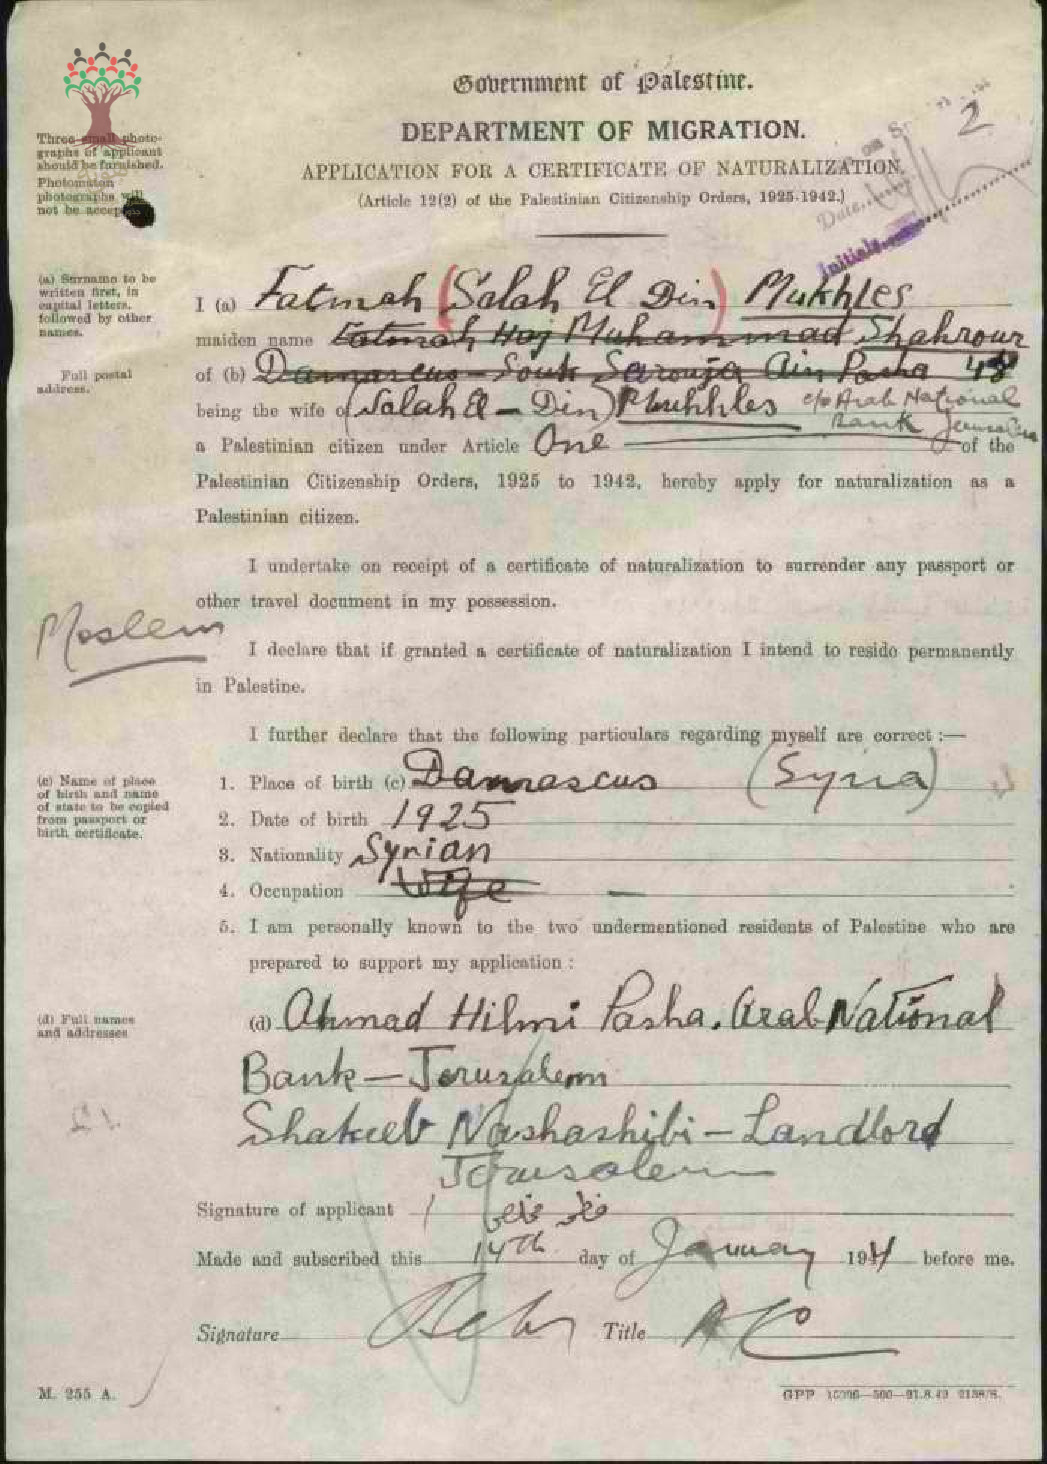 Government of Palestine.
DEPARTMENT OF MIGRATION.
APPLICATION FOR A CERTIFICATE OF NATURALIZATION.
(Article 12(2) of the Palestinian Citizenship Orders, 1925-1942.)
2
Date
Initials
Three small photo-
graphs of applicant
should be furnished.
Photomaton
photographs will
not be accepted
(a) Surname to be
written first, in
capital letters,
followed by other
names.
I (a) Fatmah (Salah El Din) Mukhles
maiden name Fatmah Haj Muhammad Shahrour
Full postal
address.
of (b) Damascus - Souk Sarouja Ain Pasha 48
being the wife of (Salah El - Din) Mukhles c/o Arab National
Bank Jerusalem
a Palestinian citizen under Article One of the
Palestinian Citizenship Orders, 1925 to 1942, hereby apply for naturalization as a
Palestinian citizen.
I undertake on receipt of a certificate of naturalization to surrender any passport or
other travel document in my possession.
Moslem
I declare that if granted a certificate of naturalization I intend to reside permanently
in Palestine.
I further declare that the following particulars regarding myself are correct :—
(c) Name of place
of birth and name
of state to be copied
from passport or
birth certificate.
1. Place of birth (c) Damascus (Syria)
2. Date of birth 1925
3. Nationality Syrian
4. Occupation Wife —
5. I am personally known to the two undermentioned residents of Palestine who are
prepared to support my application :
(d) Full names
and addresses
(d) Ahmad Hilmi Pasha. Arab National
Bank — Jerusalem
Shakeeb Nashashibi - Landlord
Jerusalem
Signature of applicant
Made and subscribed this 14th day of January 194 before me.
Signature Title
M. 255 A.
GPP